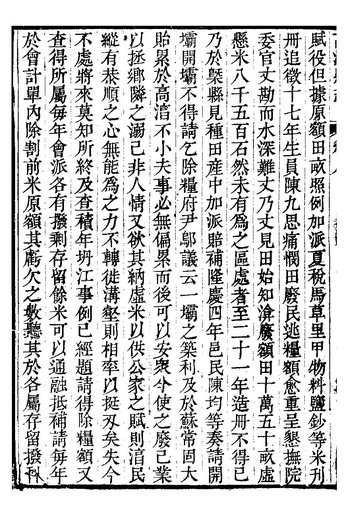 賦役但據原額田畝照例加派夏稅馬草里甲物料鹽鈔等米刋
冊追徵十七年生員陳九思痛憫田廢民逃糧額愈重呈懇撫院
委官丈勘而水深難丈乃丈見田始知渰廢額田十萬五十畝虛
懸米八千五百石然未有爲之區處者至二十一年造冊不得已
乃於槩縣見種田産中加派貽補隆慶四年邑民陳均等奏請開
壩開壩不得請乞除糧府尹鄺議云一壩之築利及於蘇常固大
貽累於高淯不小夫事必無偏累而後可以安與今使之廢已業
以拯鄉隣之溺已非人情又欲其納虛米以供公家之賦則淯民
縱有恭順之心無能爲之力不轉徙溝壑則相率以挺刃矣失今
不處將來莫知所終及查積年坍江事例已經題請得除糧額又
查得所屬每年會派各有撥剩存留餘米可以通融抵補請每年
於會計單內除割前米原額其虧欠之數聽其於各屬存留撥剩